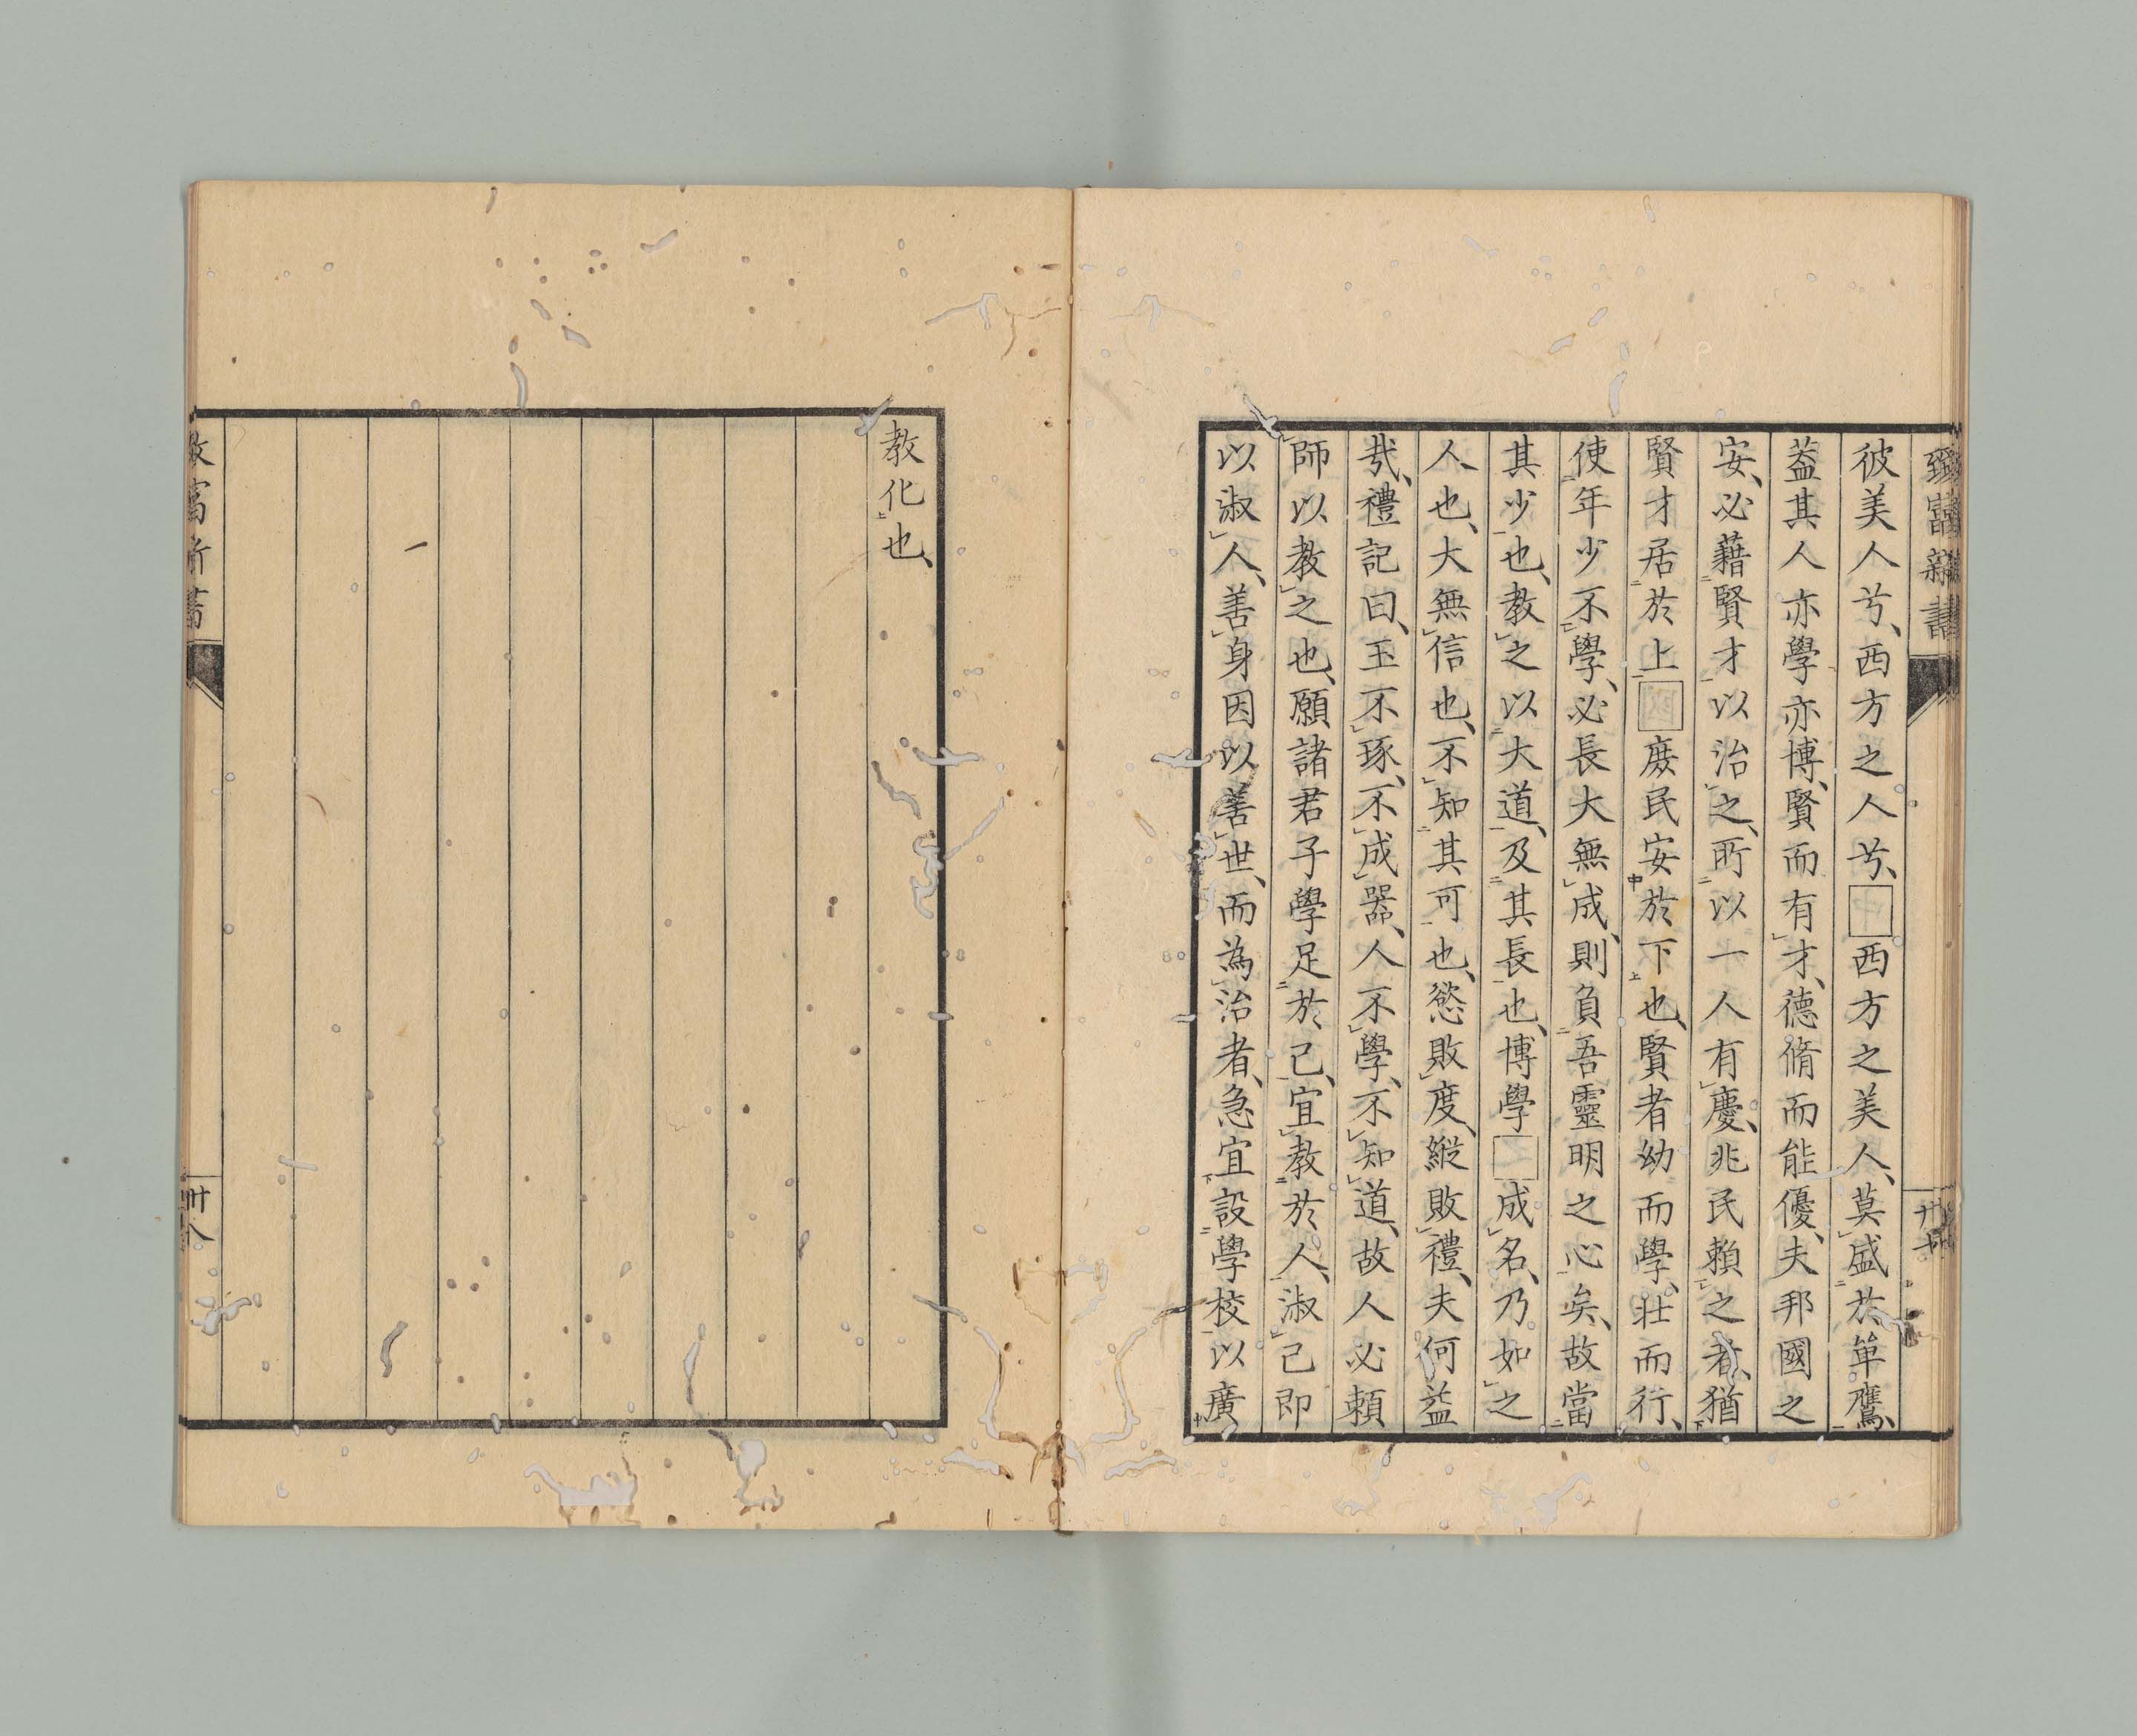 彼美人兮、西方之人兮、□西方之美人、莫盛於単鷹、
葢其人亦學亦博、賢而有才、德脩而能優、夫邦國之
安、必藉賢才以治之、所以一人有慶、兆民頼之者、猶
賢才居於上□庶民安於下也、賢者幼而學、壮而行、
使年少不學、必長大無成、則負吾靈明之心矣、故當
其少也、教之以大道、及其長也、博學□成名、乃如之
人也、大無信也、不知其可也、慾敗度、縱敗禮、夫何益
㢤、禮記曰、玉不琢、不成器、人不學、不知道、故人必頼
師以教之也、願諸君子學足於己、宜教於人、淑己即
以淑人、善身因以善世、而為治者、急宜設學校以廣
教化也、
卅八